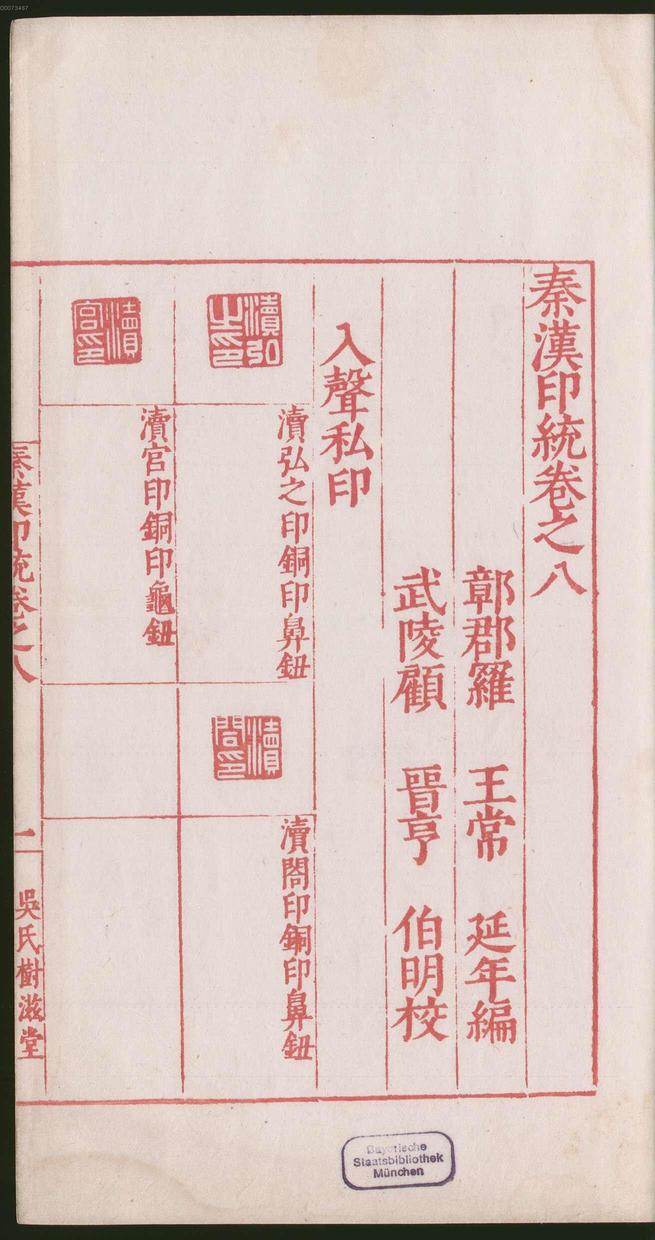 秦漢印統卷之八
鄣郡羅 王常 延年編
武陵顧 晋亨 伯明校
入聲私印
瀆弘之印
瀆弘之印銅印鼻鈕
瀆閤印
瀆閤印銅印鼻鈕
瀆官印
瀆官印銅印龜鈕
秦漢印統卷之八
一
吳氏樹滋堂
Bayerische
Staatsbibliothek
München
00073467